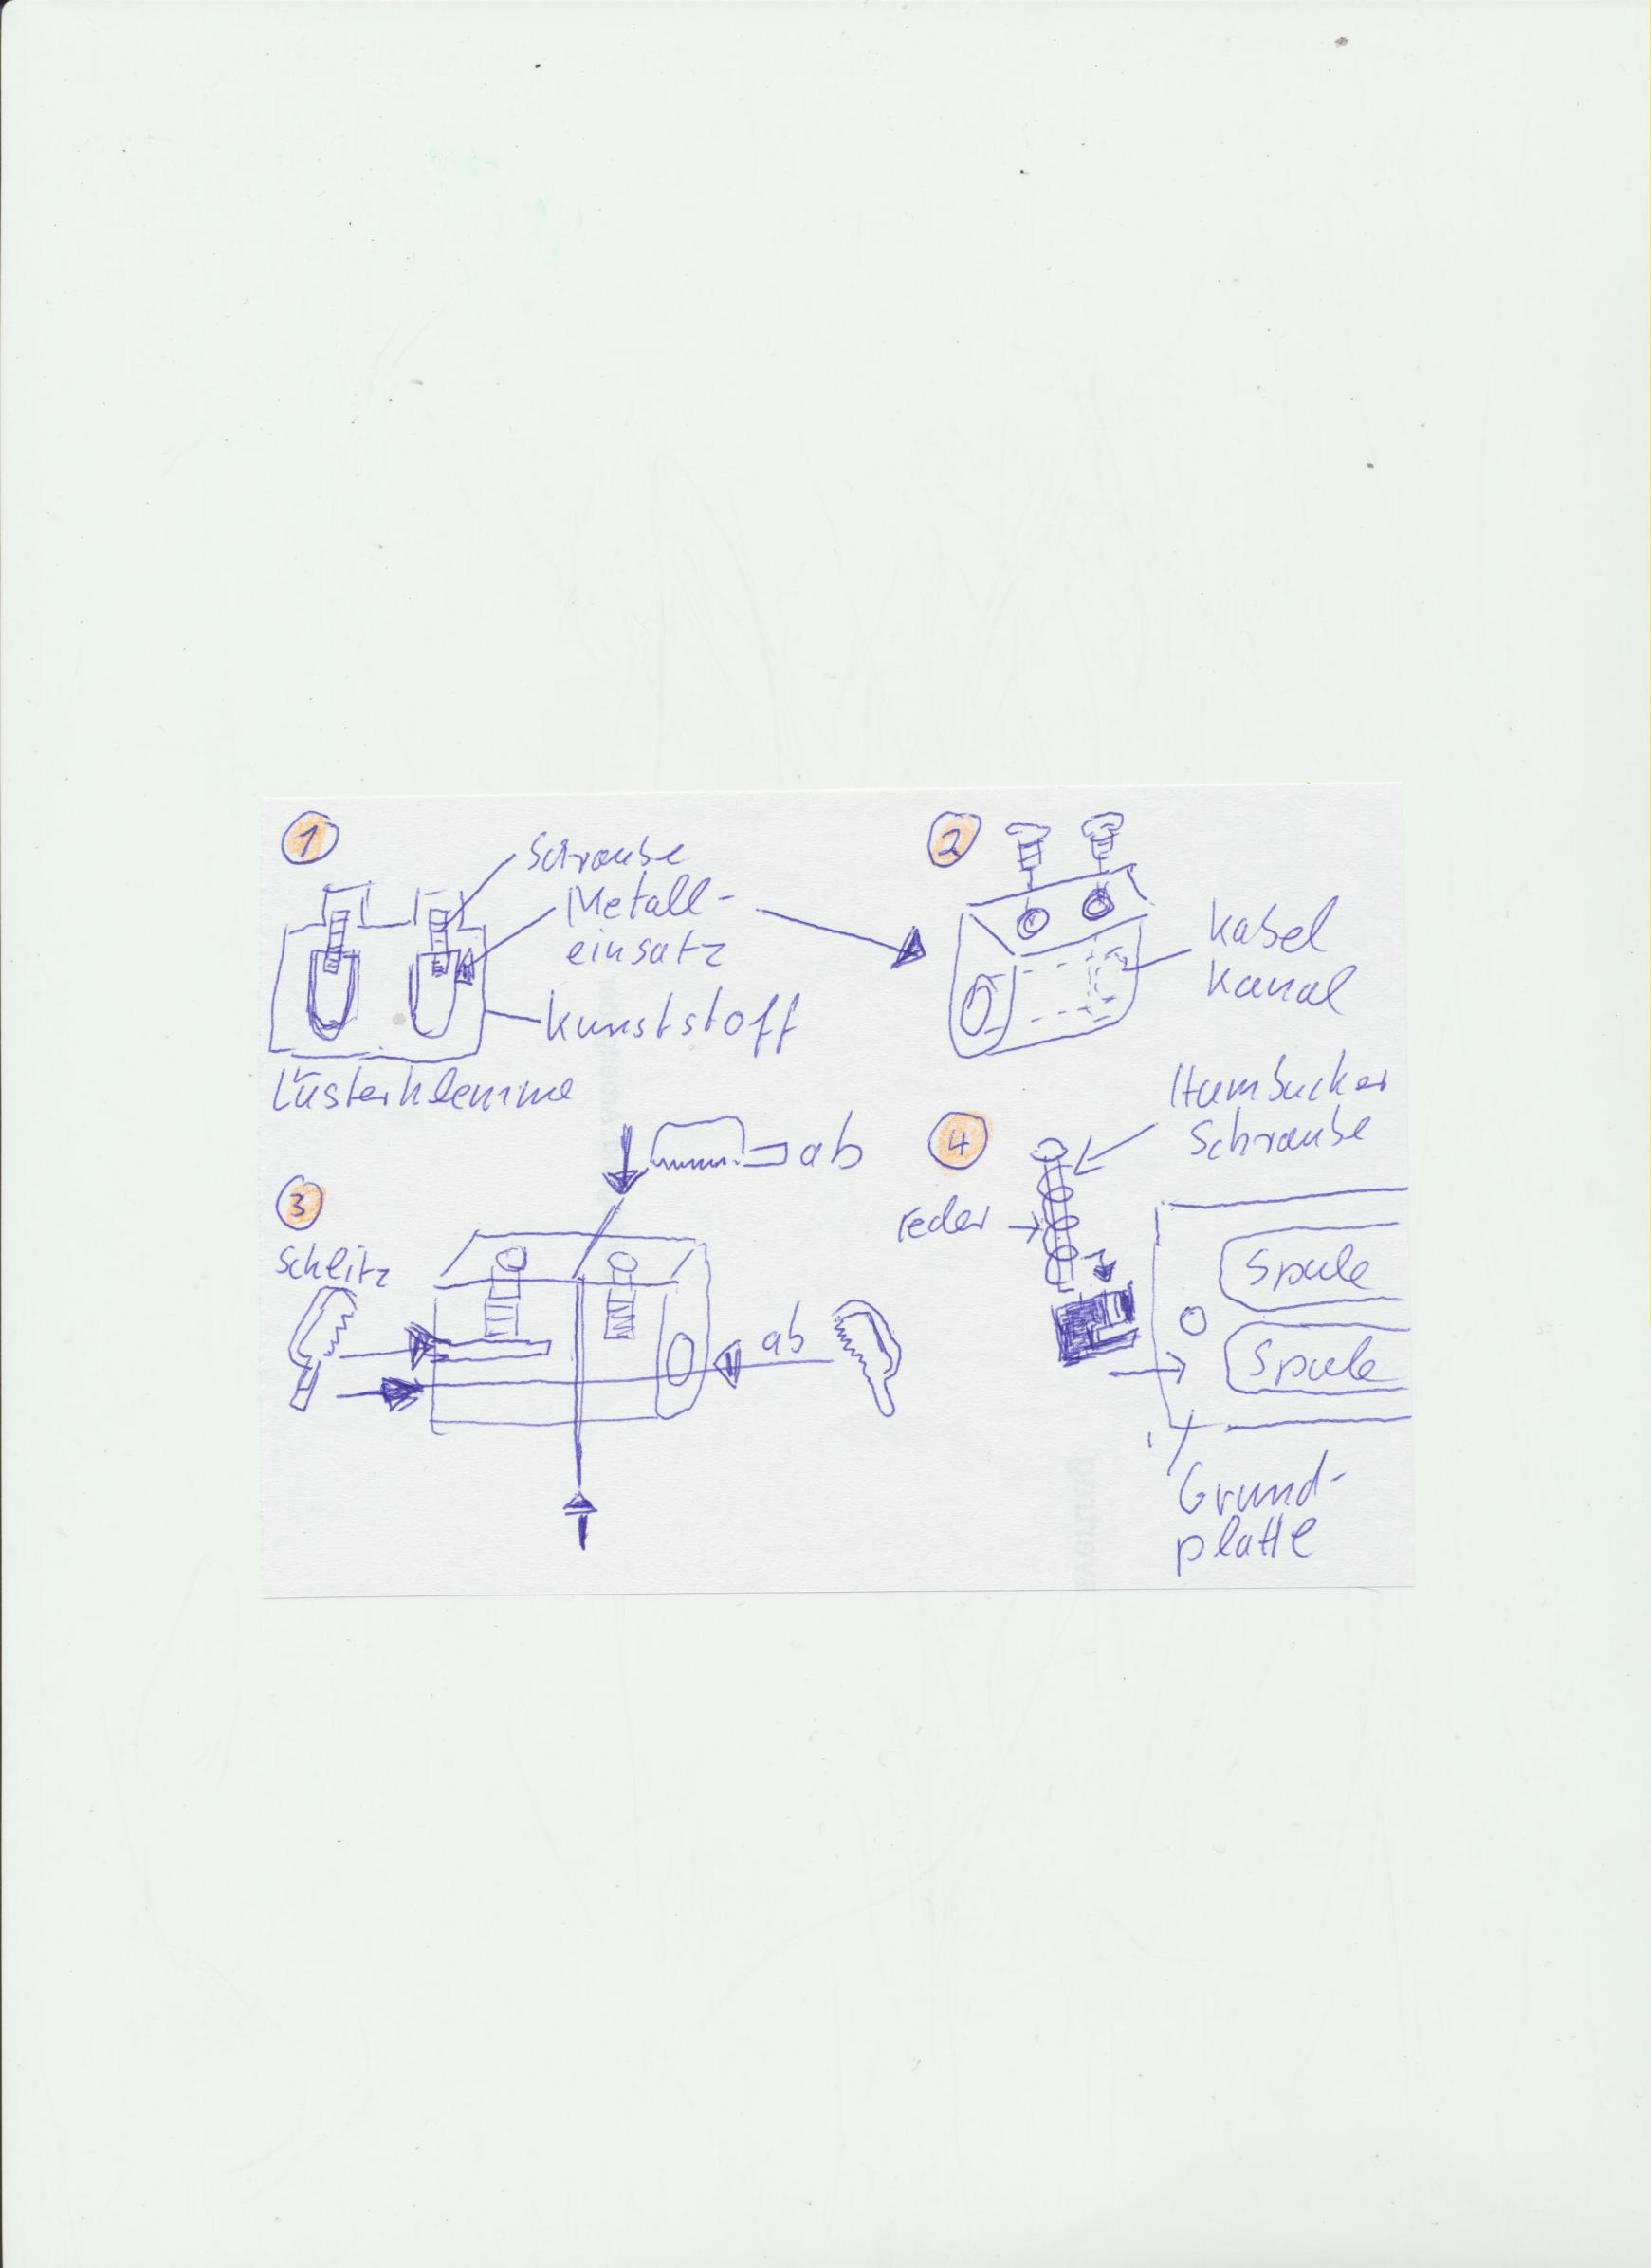 1
Schraube
Metall-
einsatz
Kunststoff
Lüsterklemme
2
Kabel
Kanal
3
Schlitz
ab
ab
4
Humbucker
Schraube
Feder
Spule
Spule
Grund-
platte